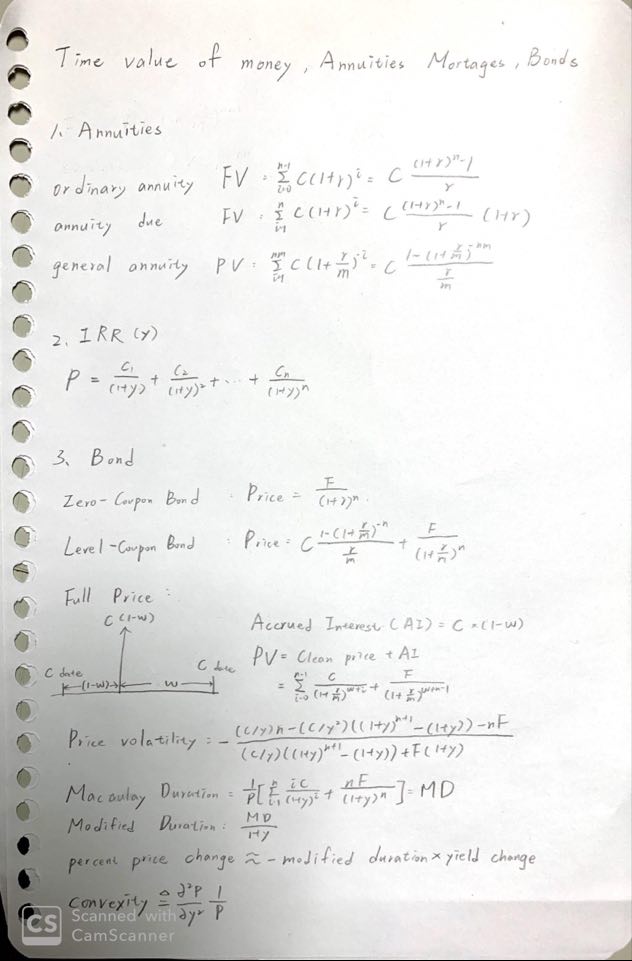 Time value of money, Annuities Mortages, Bonds
1. Annuities
ordinary annuity FV = \sum_{i=0}^{n-1} C(1+r)^i = C \frac{(1+r)^n-1}{r}
annuity due FV = \sum_{i=1}^{n} C(1+r)^i = C \frac{(1+r)^n-1}{r} (1+r)
general annuity PV = \sum_{i=1}^{nm} C(1+\frac{r}{m})^{-i} = C \frac{1-(1+\frac{r}{m})^{-nm}}{\frac{r}{m}}
2. IRR (y)
P = \frac{C_1}{(1+y)} + \frac{C_2}{(1+y)^2} + ... + \frac{C_n}{(1+y)^n}
3. Bond
Zero-Coupon Bond : Price = \frac{F}{(1+r)^n}.
Level-Coupon Bond : Price = C \frac{1-(1+\frac{r}{m})^{-n}}{\frac{r}{m}} + \frac{F}{(1+\frac{r}{m})^n}
Full Price :
C(1-w)
C date
(1-w)
w
C date
Accrued Interest (AI) = C × (1-w)
PV = Clean price + AI
= \sum_{i=0}^{n-1} \frac{C}{(1+\frac{r}{m})^{w+i}} + \frac{F}{(1+\frac{r}{m})^{w+n-1}}
Price volatility = - \frac{(C/y)n-(C/y^2)((1+y)^{n+1}-(1+y))-nF}{(C/y)((1+y)^{n+1}-(1+y))+F(1+y)}
Macaulay Duration = \frac{1}{P}[\sum_{i=1}^{n} \frac{iC}{(1+y)^i} + \frac{nF}{(1+y)^n}] = MD
Modified Duration : \frac{MD}{1+y}
percent price change ≈ - modified duration × yield change
convexity ≜ \frac{∂^2P}{∂y^2} \frac{1}{P}
CS Scanned with
CamScanner